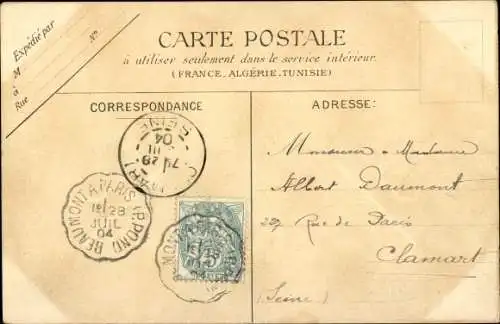 Expédié par
M
à
Rue
N°
CARTE POSTALE
à utiliser seulement dans le service intérieur.
(FRANCE, ALGÉRIE, TUNISIE)
CORRESPONDANCE
ADRESSE:
SEINE
04
28
BEAUMONT A PARIS
28
JUIL
04
5
Monsieur & Madame
Albert Daumont
Rue de Paris
Clamart
(Seine)